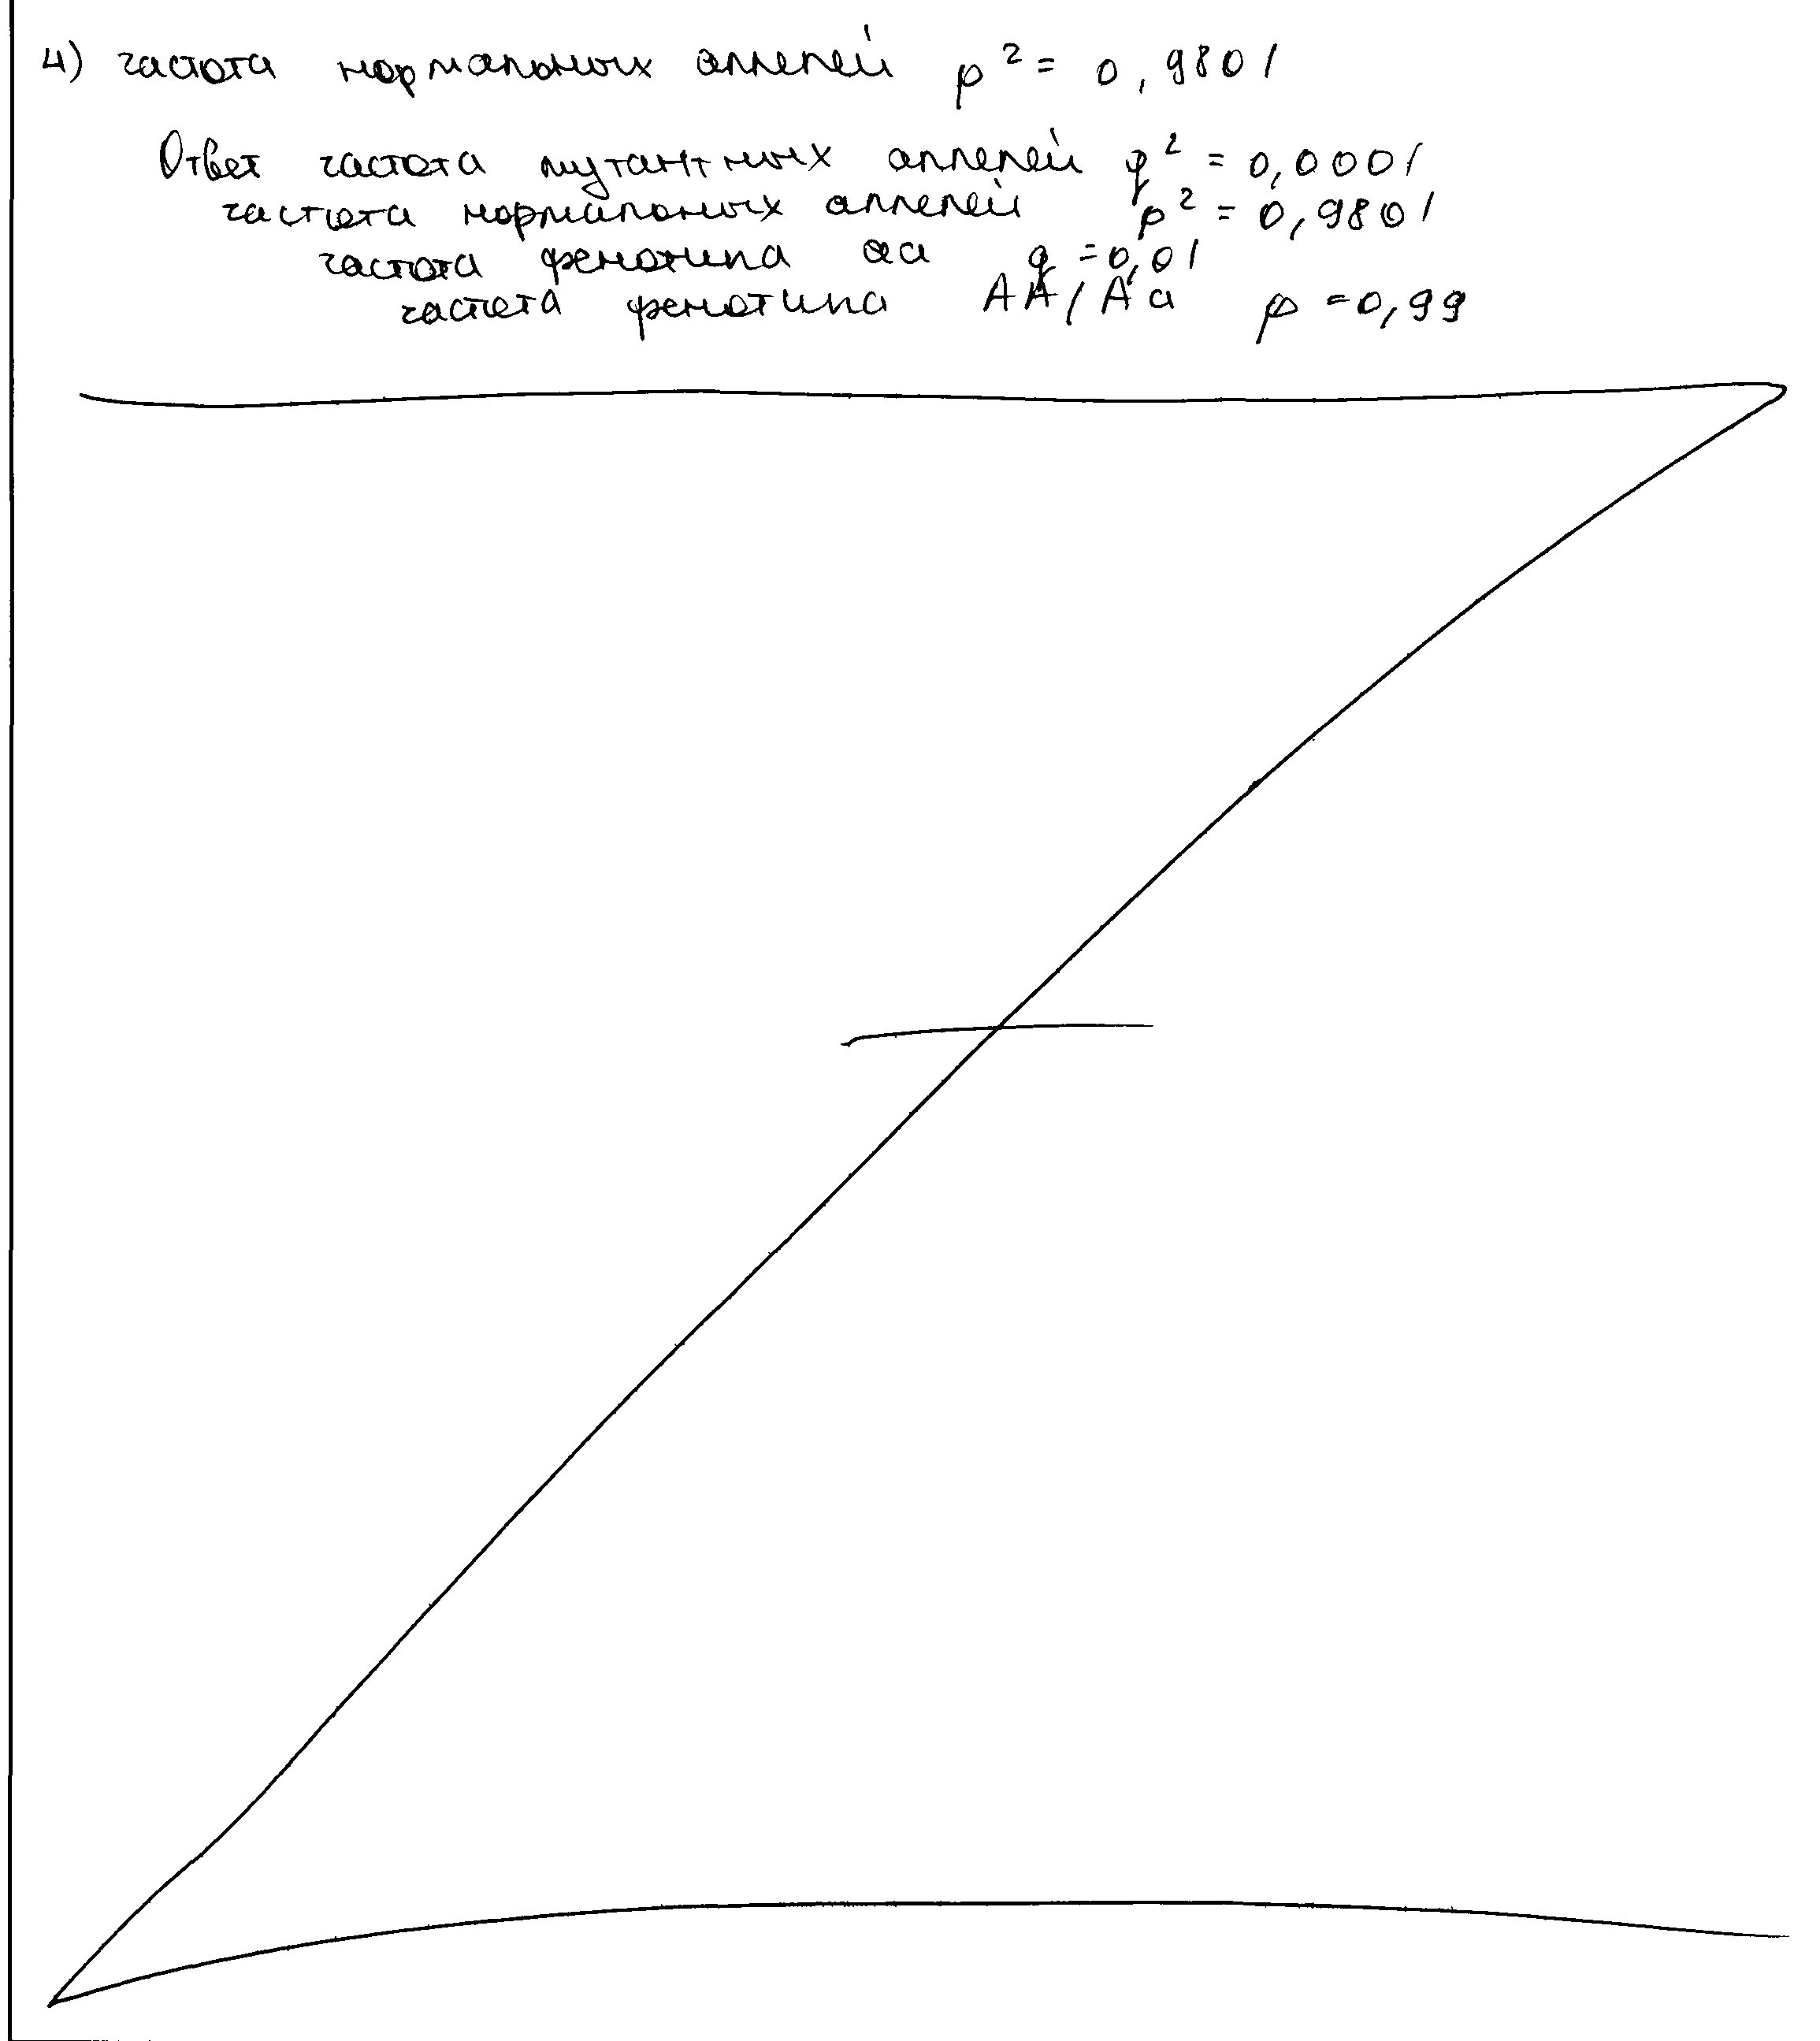 4) частота нормальных аллелей p² = 0,9801
Ответ частота мутантных аллелей q² = 0,0001
частота нормальных аллелей p² = 0,9801
частота фенотипа аа q = 0,01
частота фенотипа АА/Аа p = 0,99